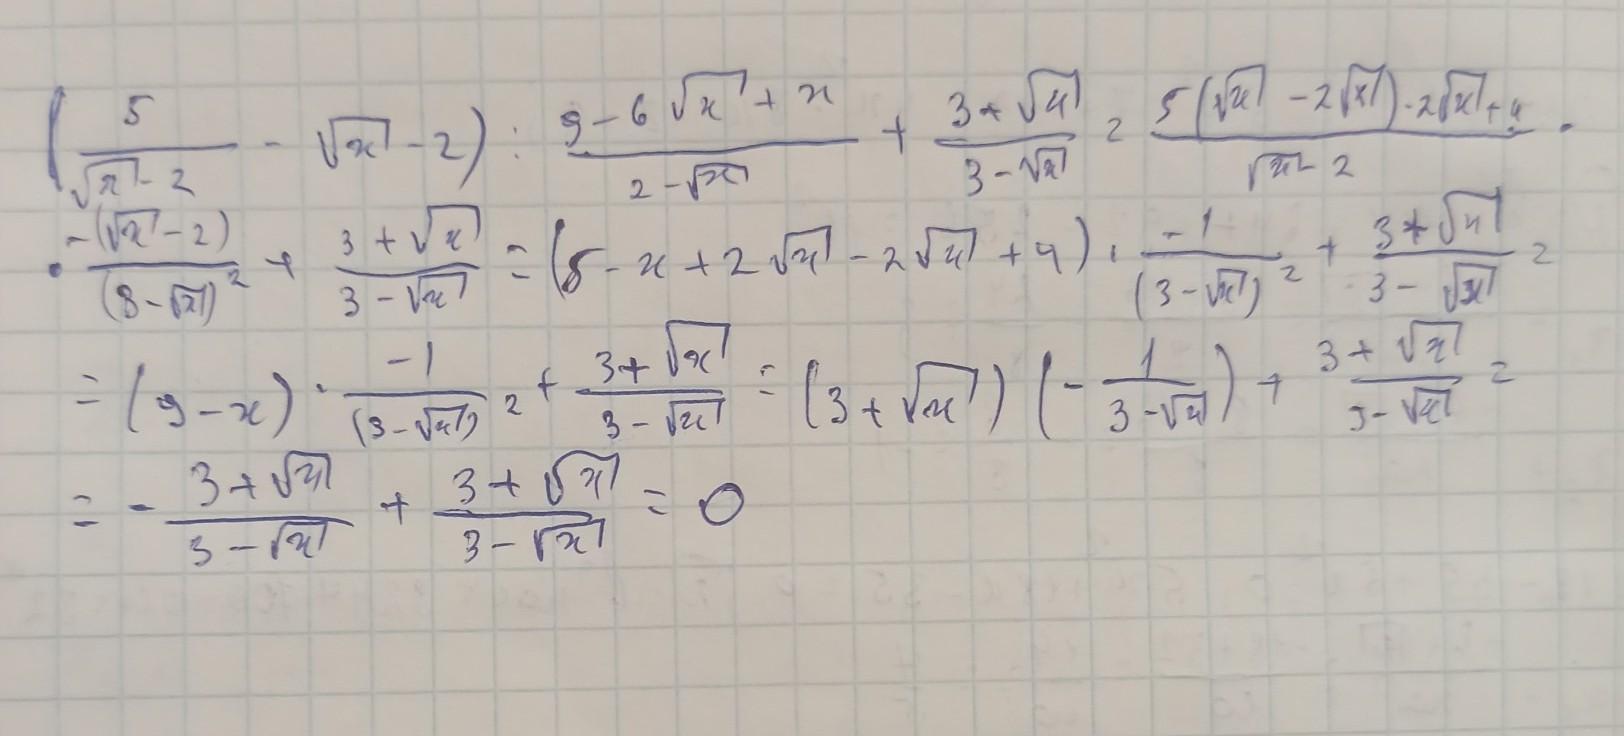 (5/(√x - 2) - √x - 2) : (9 - 6√x + x)/(2 - √x) + (3 + √x)/(3 - √x) = (5(√x - 2√x) - 2√x + 4)/(√x - 2) ·
· (-(√x - 2))/(3 - √x)² + (3 + √x)/(3 - √x) = (5 - x + 2√x - 2√x + 4) · (-1)/(3 - √x)² + (3 + √x)/(3 - √x) =
= (9 - x) · (-1)/(3 - √x)² + (3 + √x)/(3 - √x) = (3 + √x)(- 1/(3 - √x)) + (3 + √x)/(3 - √x) =
= - (3 + √x)/(3 - √x) + (3 + √x)/(3 - √x) = 0